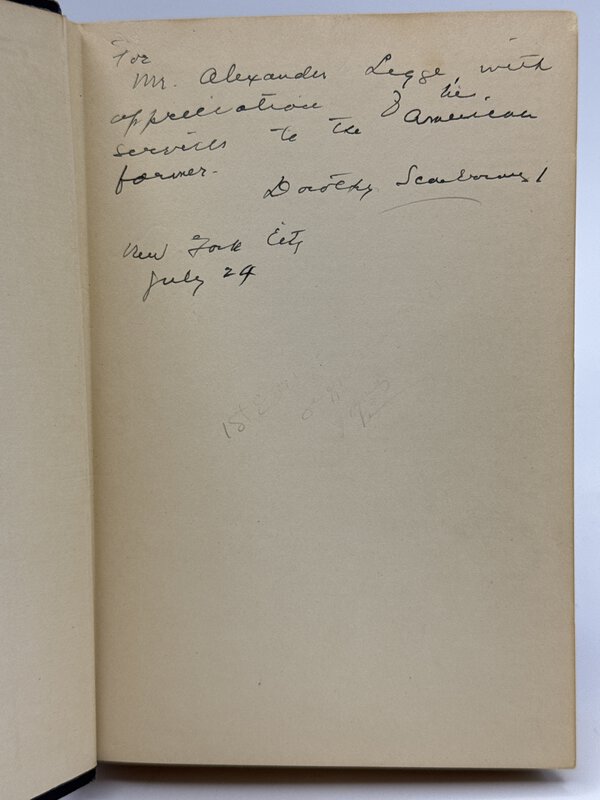 For
Mr. Alexander Legge, with
appreciation of his
services to the American
farmer.
Dorothy Scarborough
New York City
July 24
1st Ed